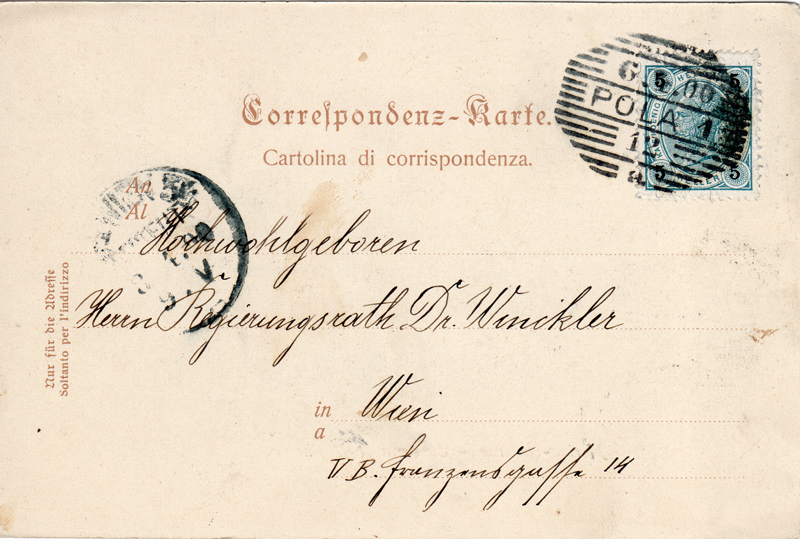 Correspondenz-Karte.
Cartolina di corrispondenza.
POLA 1
12
5 5
5 5
An
Al
Hochwohlgeboren
Herrn Regierungsrath Dr. Winckler
in Wien
a
VB. Franzensgasse 14
Nur für die Adresse
Soltanto per l'indirizzo